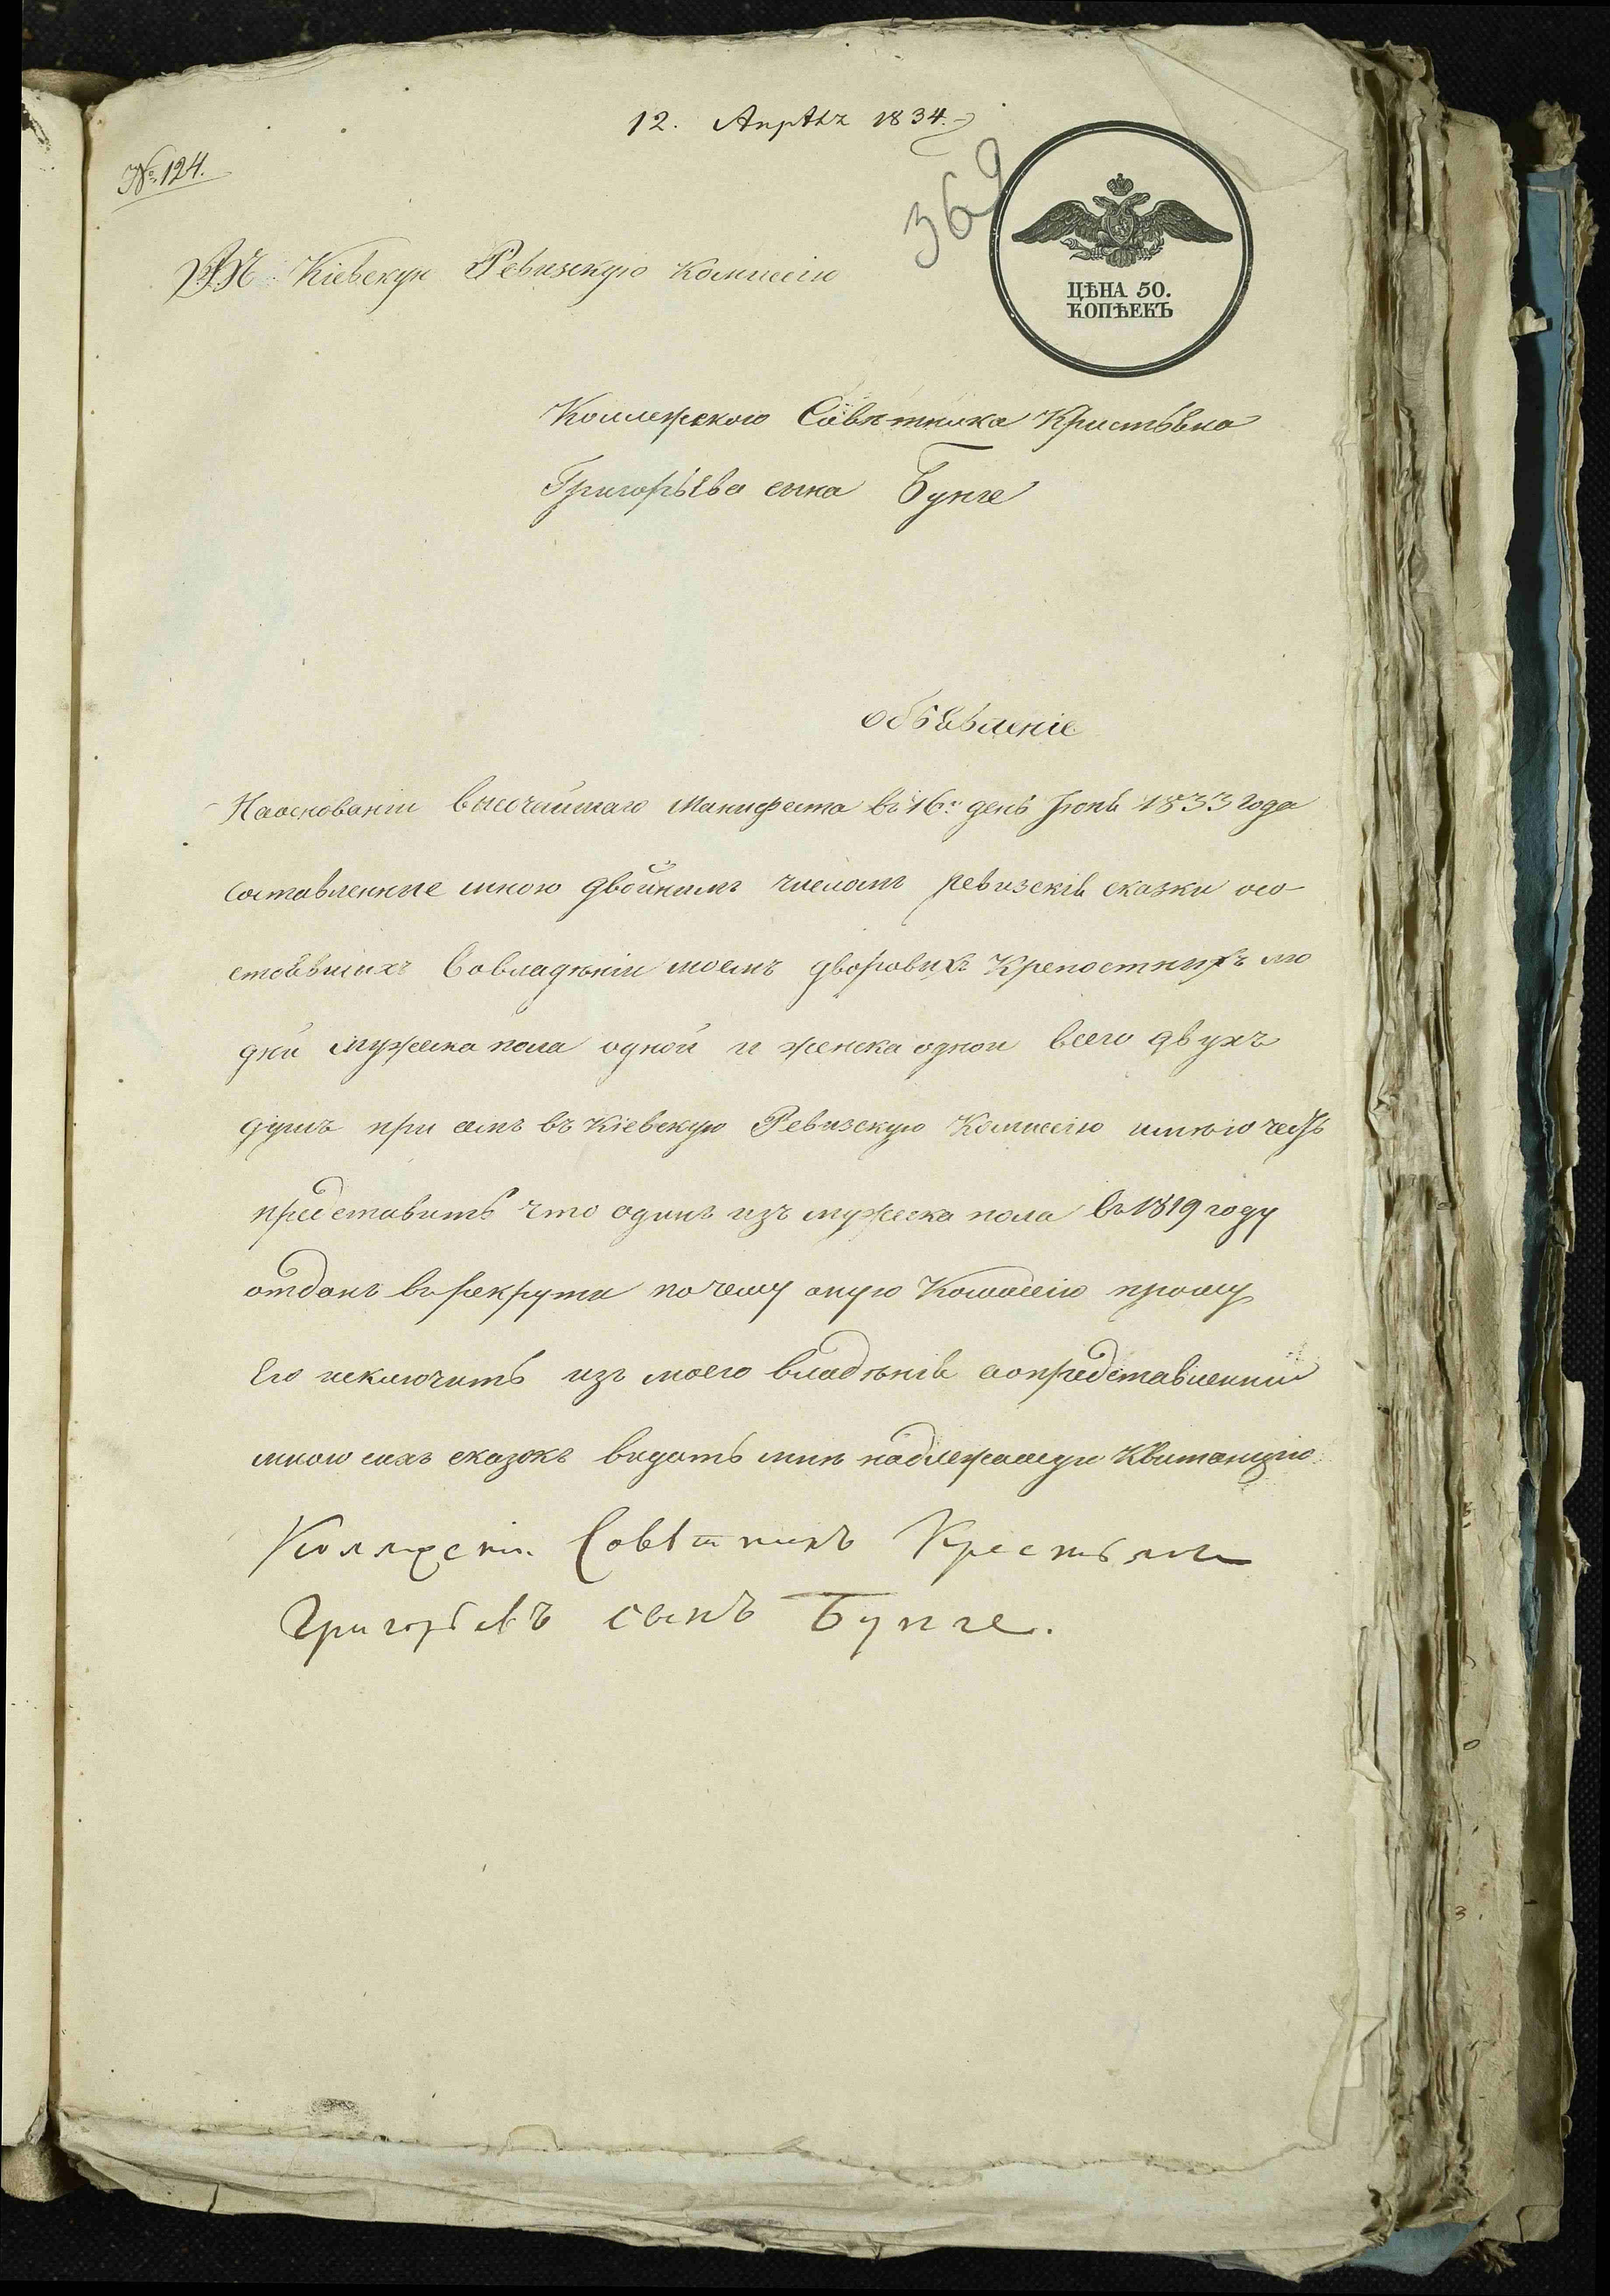 12. Апрѣлъ 1834.
№ 124.
369
ЦѢНА 50.
КОПѢЕКЪ
Въ Кіевскую Ревизскую Комиссію
Коллежского Совѣтника Кристьяна
Григорьева сына Бунге
Объявленіе
На основаніи высочайшаго манифеста въ 16.й день Іюня 1833 года
составленные мною двойнымъ числомъ ревизскія сказки осо-
стоявшихъ во владѣніи моемъ дворовыхъ крепостныхъ лю
дей мужеска пола одной и женска одной всего двухъ
душъ при семъ въ Кіевскую Ревизскую Комиссію имѣю честь
представить что одинъ изъ мужеска пола въ 1819 году
отданъ въ рекруты почему оную Комиссію прошу
его исключить изъ моего владѣнія а о представленіи
мною сихъ сказокъ выдать мнѣ надлежащую Квитанцію
Коллежскій Совѣтникъ Крестьянъ
Григорьевъ сынъ Бунге.